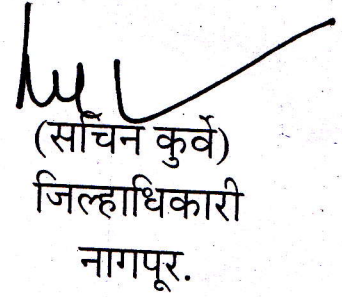 (सचिन कुर्वे)
जिल्हाधिकारी
नागपूर.